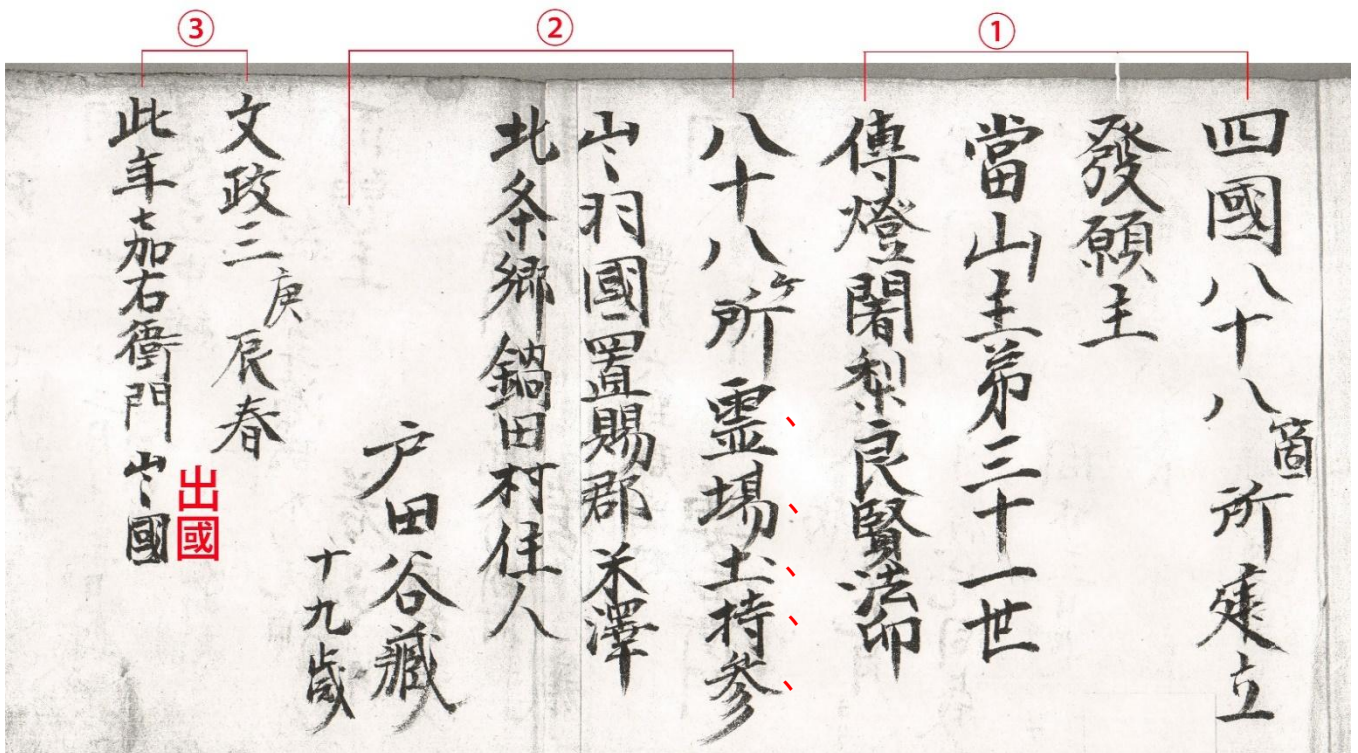 ①
②
③
四國八十八箇所建立
發願主
當山主弟三十一世
傳燈闍梨良賢法印
八十八ヶ所霊場土持参
出羽國置賜郡米澤
北条郷鍋田村住人
戸田谷藏
十九歳
文政三庚辰春
出國
此年七加右衛門出國